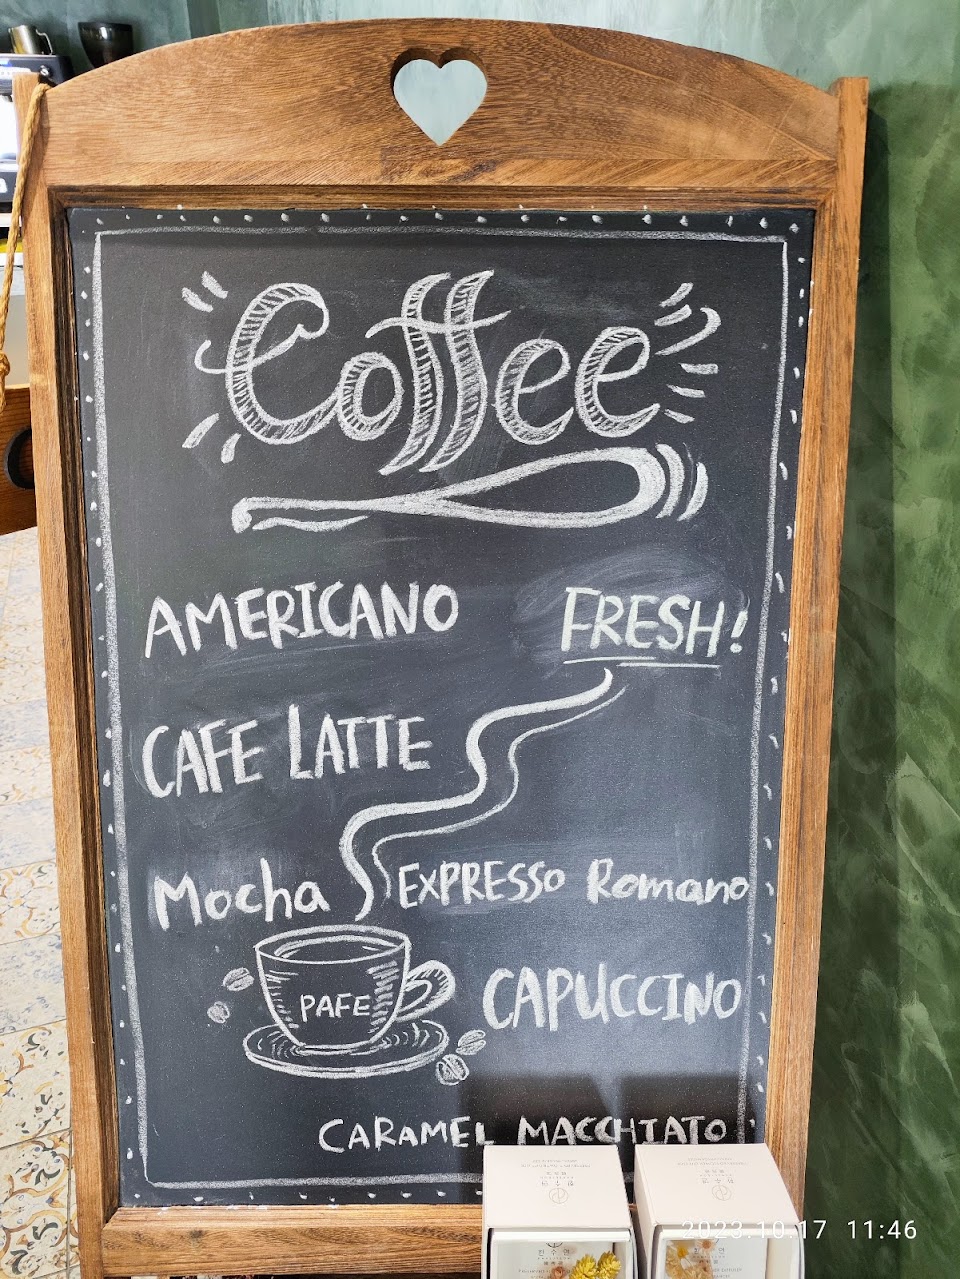 Coffee
AMERICANO
FRESH!
CAFE LATTE
Mocha
EXPRESSO Romano
PAFE
CAPUCCINO
CARAMEL MACCHIATO
2023.10.17 11:46